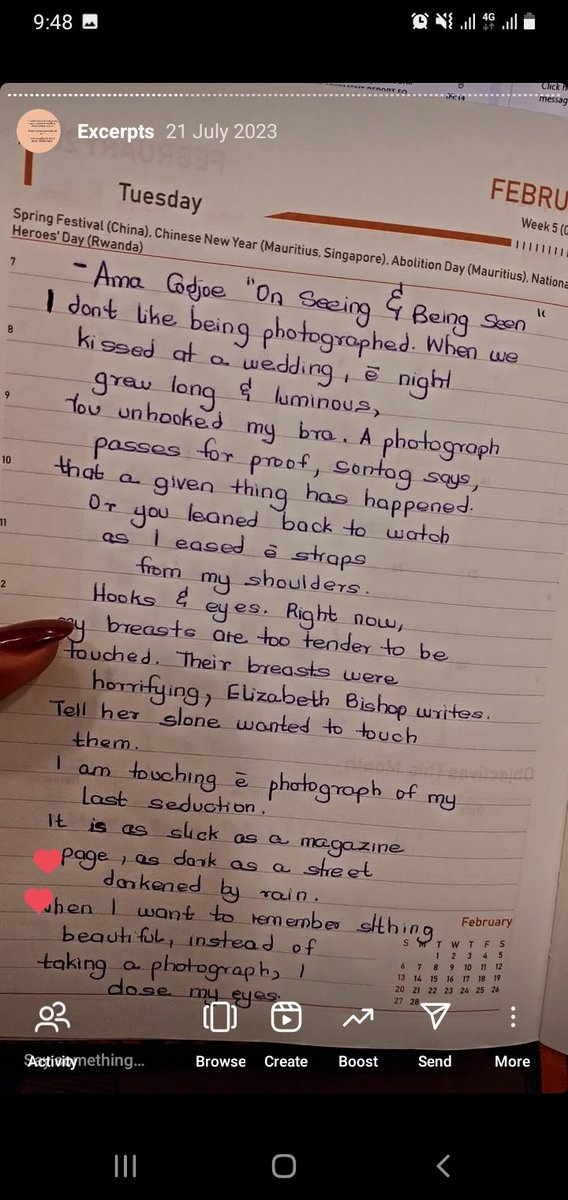 9:48
4G
Click h
messag
Excerpts 21 July 2023
Tuesday
FEBRU
Week 5 (0
Spring Festival (China), Chinese New Year (Mauritius, Singapore), Abolition Day (Mauritius), Nationa
Heroes' Day (Rwanda)
7
- Ama Codjoe "On Seeing & Being Seen"
I dont like being photographed. When we
8
kissed at a wedding, ē night
grew long & luminous,
9
You unhooked my bra. A photograph
passes for proof, sontag says,
10
that a given thing has happened.
Or you leaned back to watch
11
as I eased ē straps
from my shoulders.
2
Hooks & eyes. Right now,
my breasts are too tender to be
touched. Their breasts were
horrifying, Elizabeth Bishop writes.
Tell her s1one wanted to touch
them.
I am touching ē photograph of my
last seduction.
It is as slick as a magazine
page, as dark as a street
darkened by rain.
when I want to remember s/thing
beautiful, instead of
taking a photograph, I
close my eyes.
February
S M T W T F S
1 2 3 4 5
6 7 8 9 10 11 12
13 14 15 16 17 18 19
20 21 22 23 24 25 26
27 28
Say something...
Activity
Browse
Create
Boost
Send
More